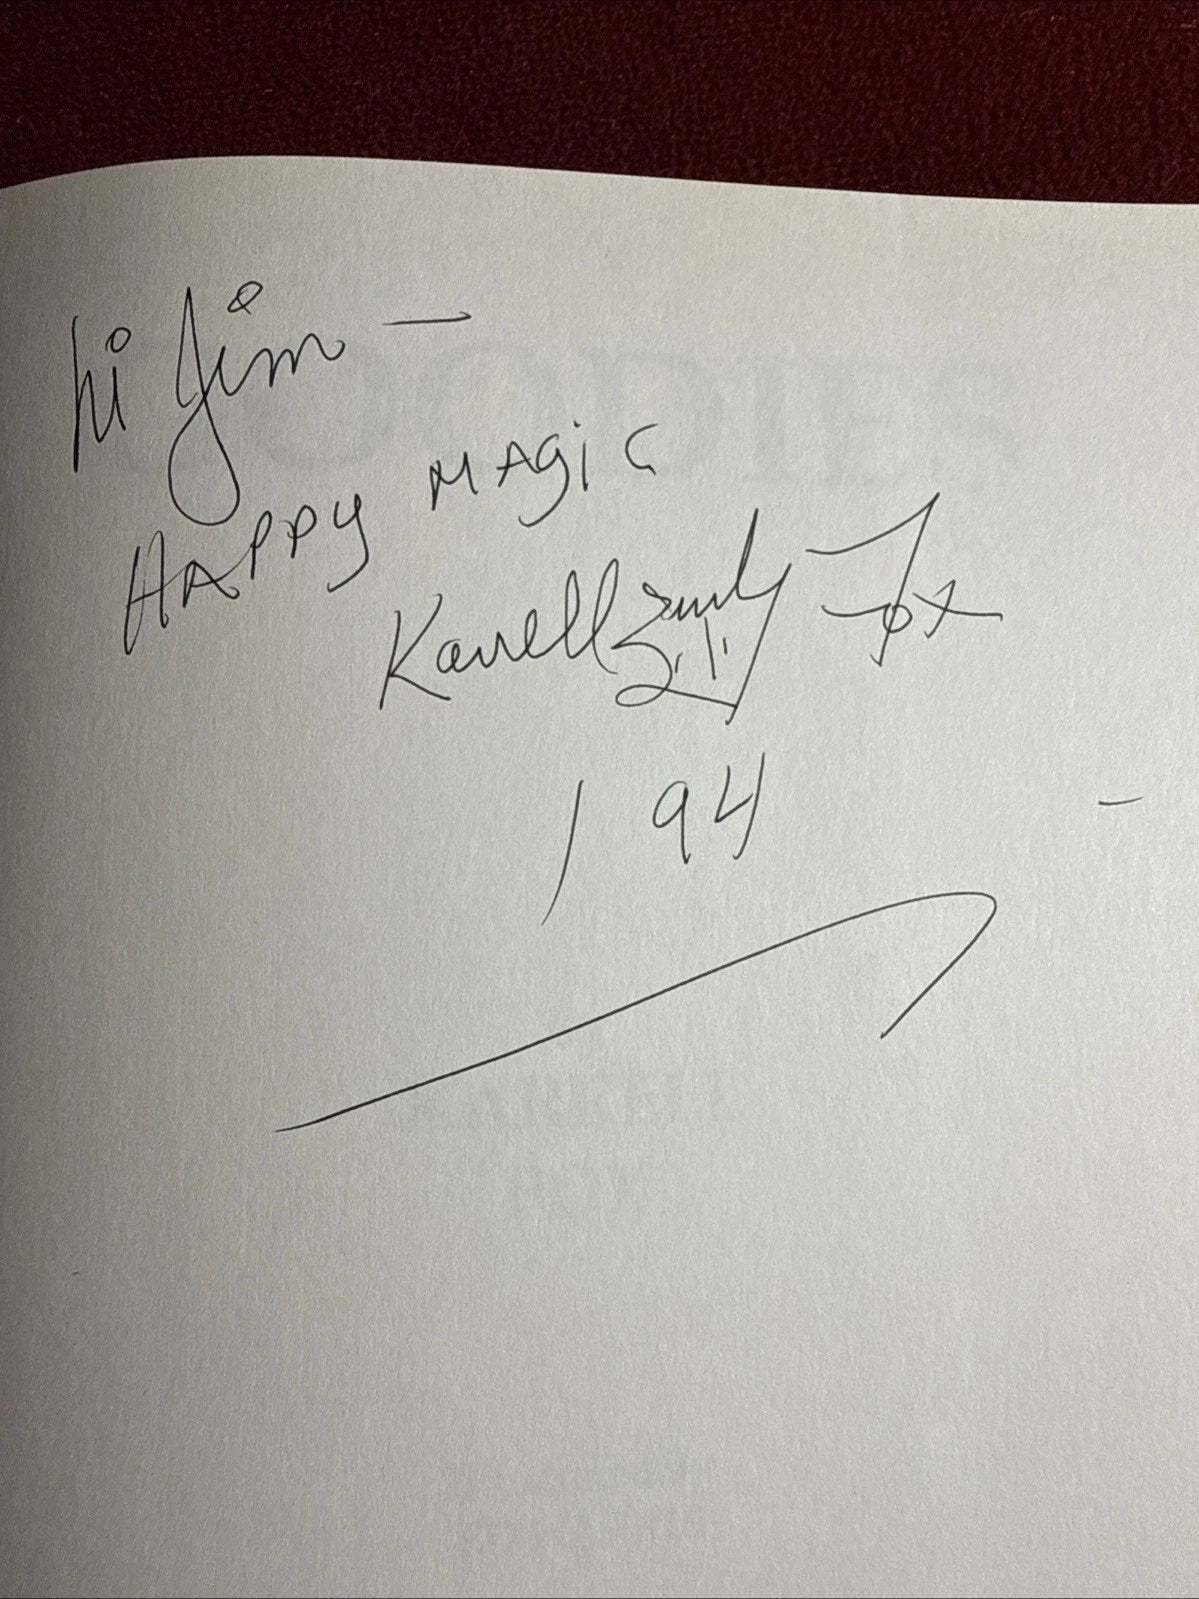 hi Jim —
HAPPY MAGIC
Karrell Fox
1 94